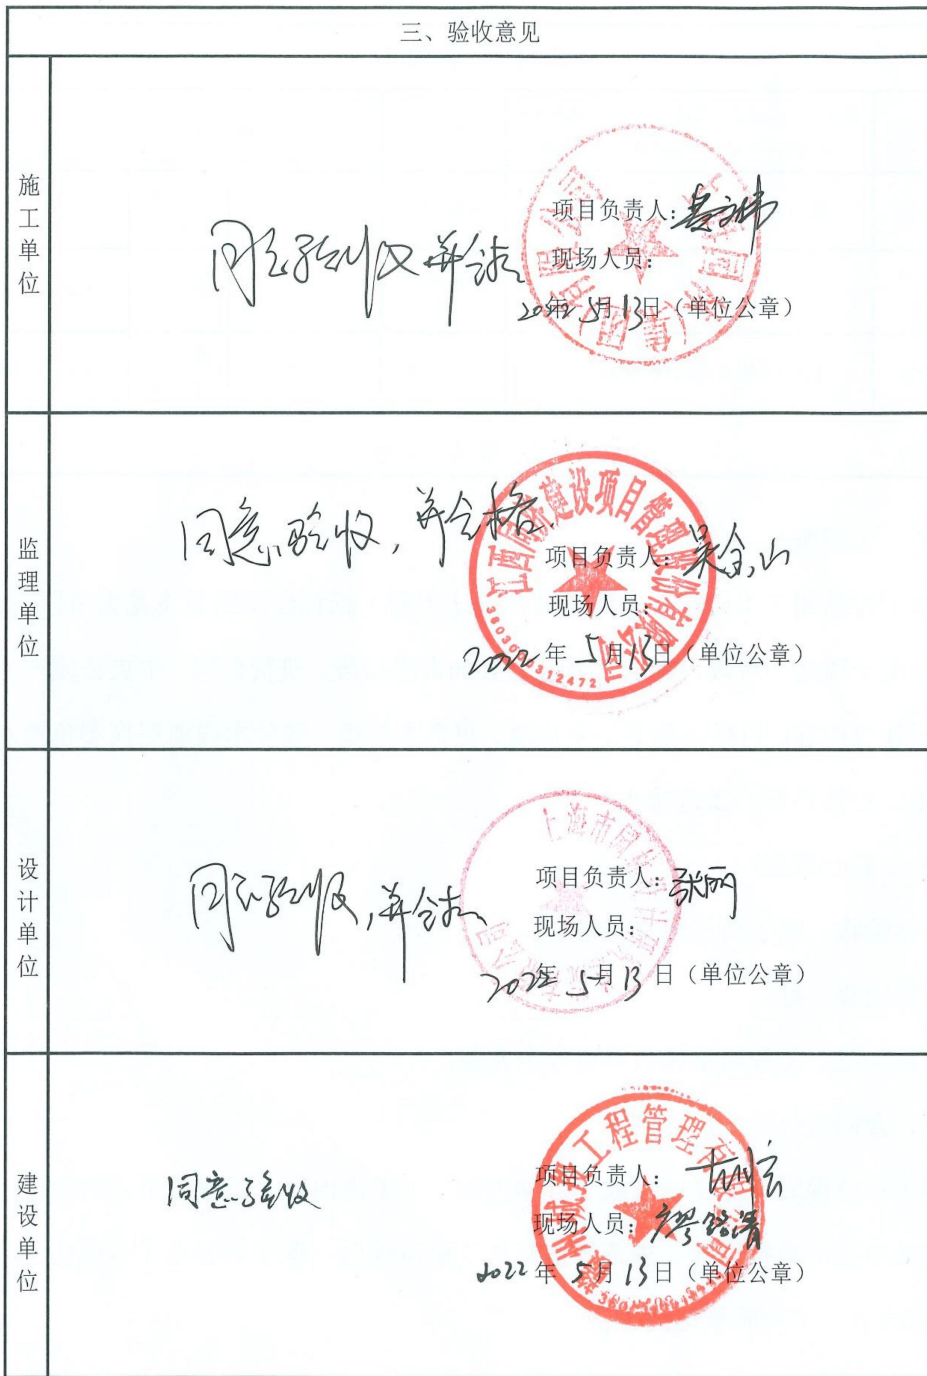 三、验收意见
施工单位
同意验收并合格
项目负责人:
现场人员:
2022年5月13日（单位公章）
监理单位
同意验收，并合格.
江西同济建设项目管理股份有限公司
项目负责人: 吴金山
现场人员:
2022年5月13日（单位公章）
设计单位
同意验收，并合格
项目负责人: 张丽
现场人员:
2022年5月13日（单位公章）
建设单位
同意验收
赣州城投工程管理有限公司
项目负责人:
现场人员: 廖铭清
2022年5月13日（单位公章）